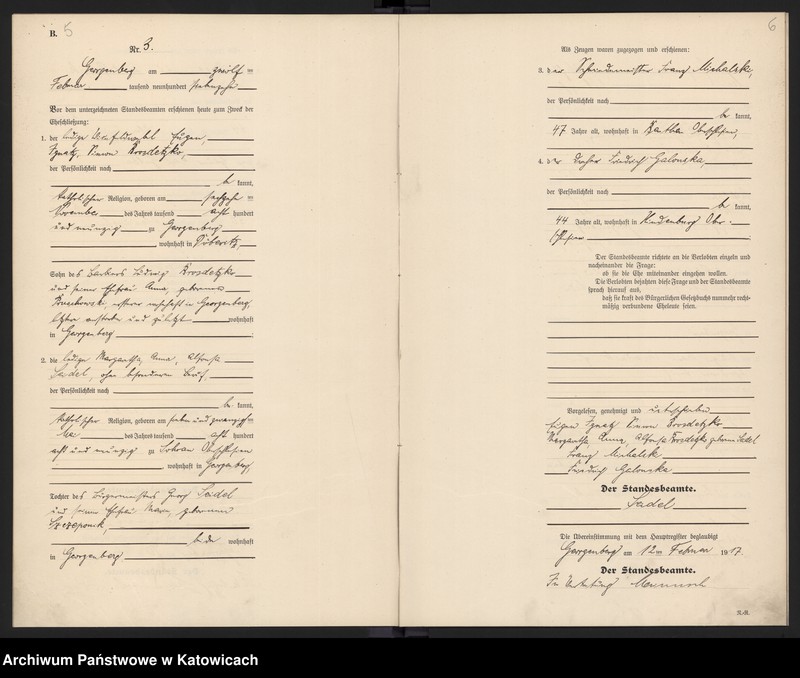 B. 5
Nr. 3.
Georgenberg am zwölf ten
Februar tausend neunhundert siebenzehn
Vor dem unterzeichneten Standesbeamten erschienen heute zum Zweck der
Eheschließung:
1. der ledige Eugen,
Ignatz, Simon Krosdetzko,
der Persönlichkeit nach
be kannt,
katholischer Religion, geboren am sechzehn ten
November des Jahres tausend acht hundert
und neunzig zu Georgenberg
wohnhaft in Döberitz,
Sohn des Barbiers Ludwig Krosdetzko
und seiner Ehefrau Anna, geborenen
ersterer wohnhaft in Georgenberg,
letztere verstorben und zuletzt wohnhaft
in Georgenberg
2. die ledige Margaretha, Anna, Alfonsa
Seidel, ohne besonderen Beruf,
der Persönlichkeit nach
be kannt,
katholischer Religion, geboren am sieben und zwanzigs ten
Mai des Jahres tausend acht hundert
acht und neunzig zu Sohrau Oberschlesien
wohnhaft in Georgenberg,
Tochter des Bürgermeisters Georg Seidel
und seiner Ehefrau Marie, geborenen
Szczeponik,
beide wohnhaft
in Georgenberg
6
Als Zeugen waren zugezogen und erschienen:
3. der Schmiedemeister Franz Michalski,
der Persönlichkeit nach
be kannt,
47 Jahre alt, wohnhaft in Oberschlesien,
4. der Dreher Friedrich Galonska,
der Persönlichkeit nach
be kannt,
44 Jahre alt, wohnhaft in Hindenburg Ober-
schlesien
Der Standesbeamte richtete an die Verlobten einzeln und
nacheinander die Frage:
ob sie die Ehe miteinander eingehen wollen.
Die Verlobten bejahten diese Frage und der Standesbeamte
sprach hierauf aus,
daß sie kraft des Bürgerlichen Gesetzbuchs nunmehr recht-
mäßig verbundene Eheleute seien.
Vorgelesen, genehmigt und unterschrieben
Eugen Ignatz Simon Krosdetzko
Margaretha, Anna, Alfonsa Krosdetzko geborene Seidel
Franz Michalski
Friedrich Galonska
Der Standesbeamte.
Seidel
Die Übereinstimmung mit dem Hauptregister beglaubigt
Georgenberg am 12ten Februar 1917.
Der Standesbeamte.
In Vertretung
R.-B.
Archiwum Państwowe w Katowicach